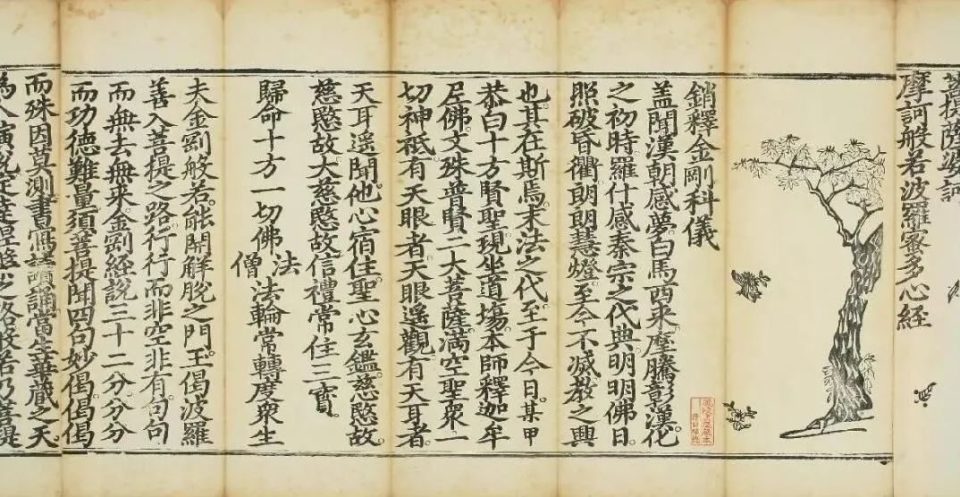 提薩婆訶
摩訶般若波羅蜜多心經
銷釋金剛科儀
蓋聞漢朝感夢白馬西來摩騰彰漢化
之初時羅什感秦宗之代典明明佛日。
照破昏衢朗朗慧燈。至今不滅教之興
也。其在斯焉。末法之代。至于今日。某甲
恭白十方賢聖現坐道場本師釋迦牟
尼佛。文殊普賢二大菩薩。滿空聖衆一
切神祇有天眼者。天眼遥觀有天耳者。
天耳遥聞。他心宿住聖心玄鑑慈愍故。
慈愍故。大慈愍故。信禮常住三寳。
歸命十方一切佛 法 僧 法輪常轉度衆生
夫金剛般若。能開解脫之門。王偈波羅
善入菩提之路。行行而非空非有。句句
而無去無來。金剛經說三十二分分分
而功德難量。須菩提聞四句妙偈偈偈
而殊因莫測。書寫讀誦當生華藏之天
為人演說